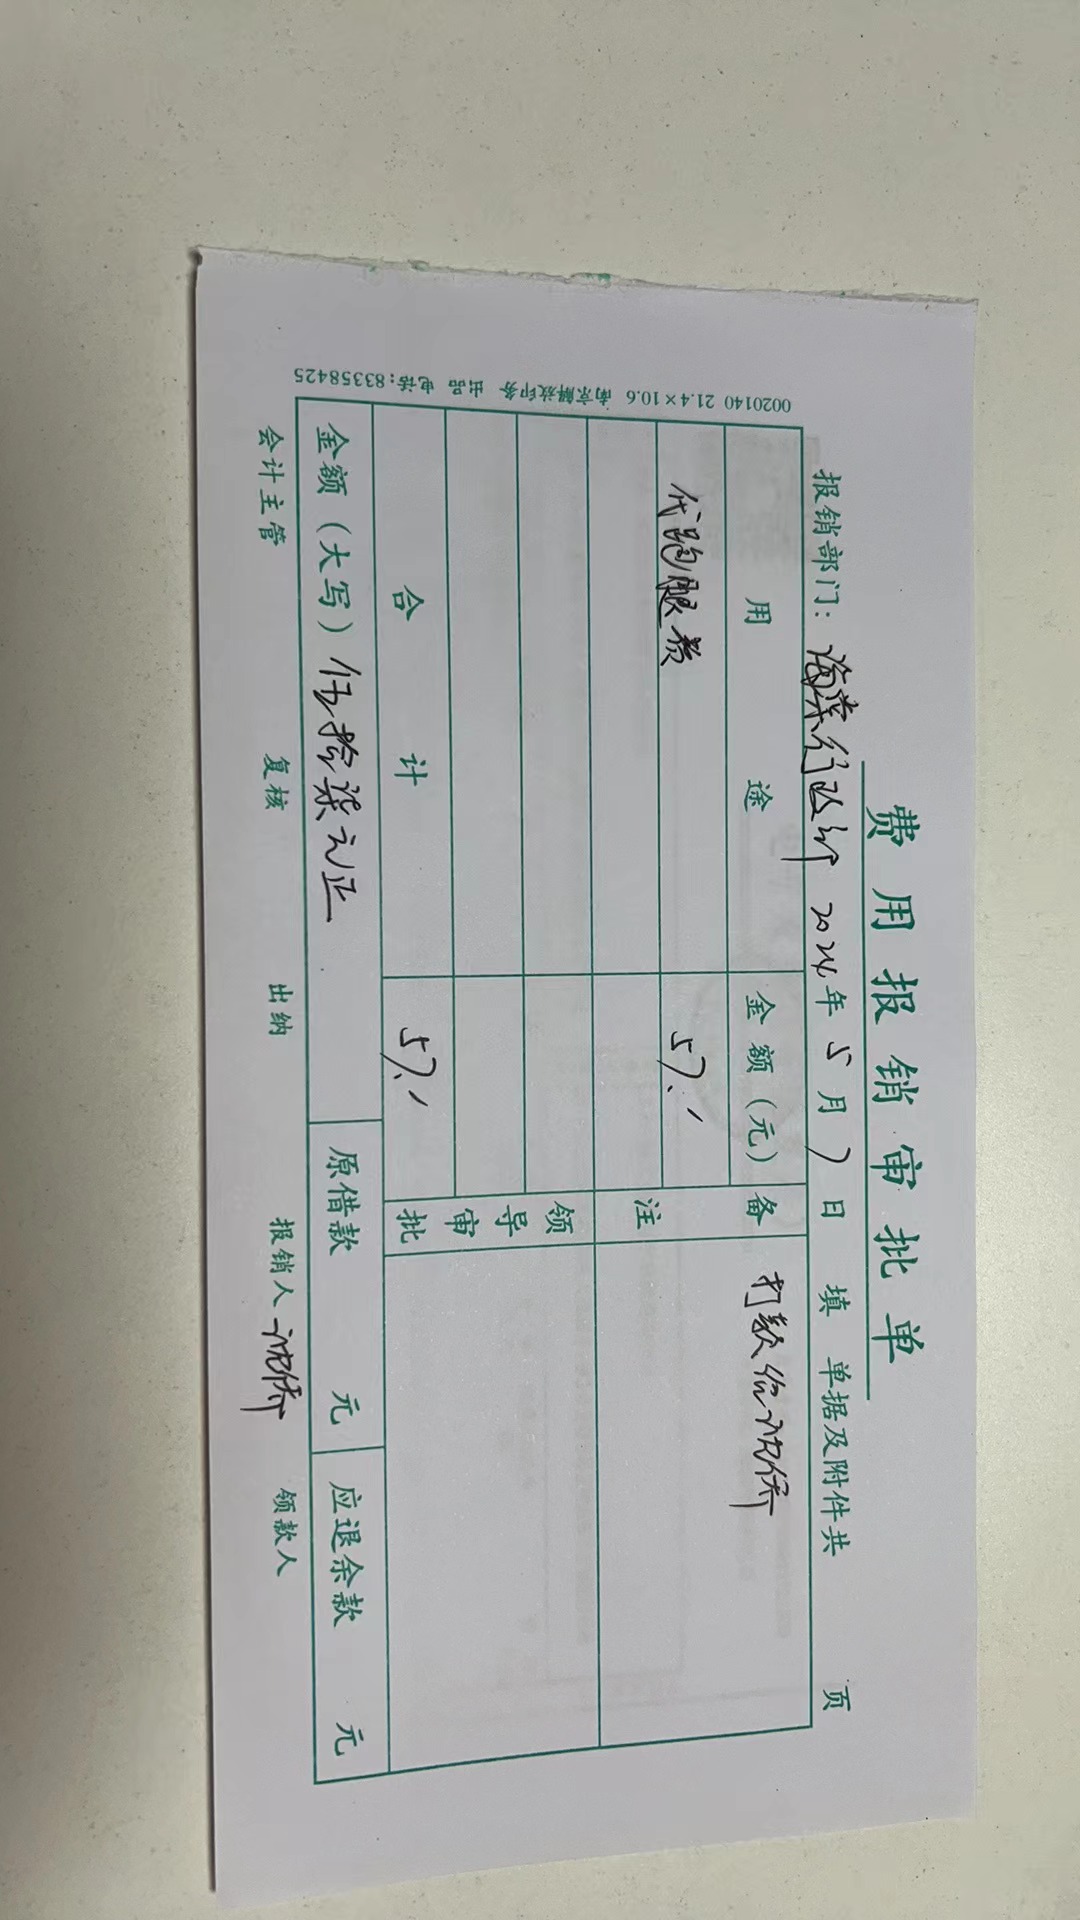 费用报销审批单
报销部门：海棠行政部 2024年5月7日填 单据及附件共 页
用途 金额（元） 备注 打款给沈侨
代跑腿费 57.-
领导审批
合计 57.-
金额（大写）伍拾柒元正 原借款 元 应退余款 元
会计主管 复核 出纳 报销人 沈侨 领款人
0020140 21.4×10.6 南京解放印务 出品 电话:83358425